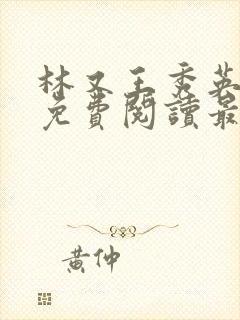 林又王秀英
免費閱讀最
黃仲